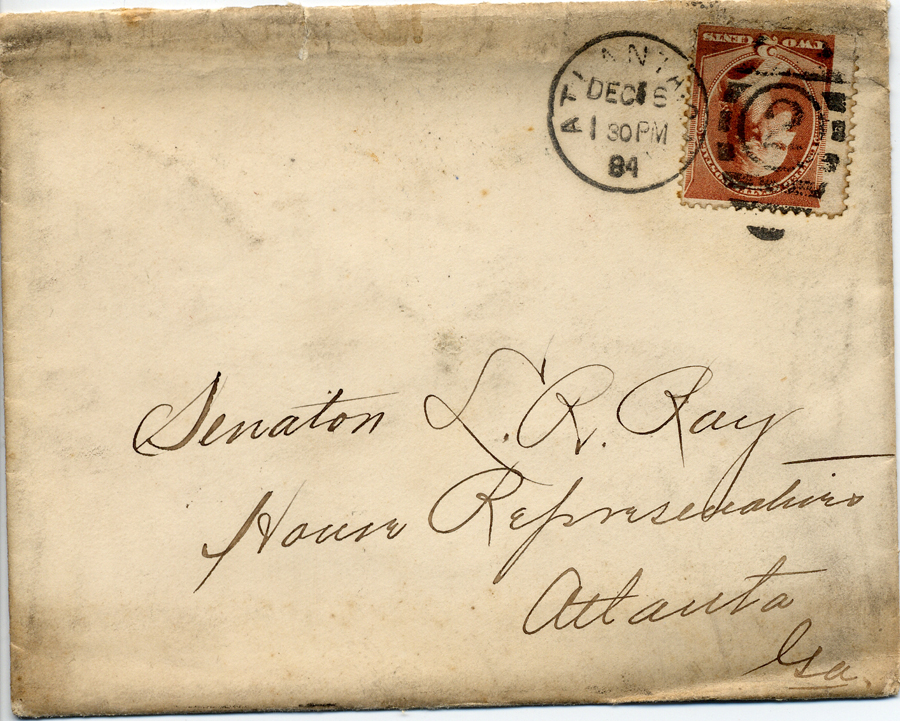 ATLANTA
DEC 16
1 30 PM
84
TWO 2 CENTS
2
Senator L. R. Ray
House Representatives
Atlanta
Ga.